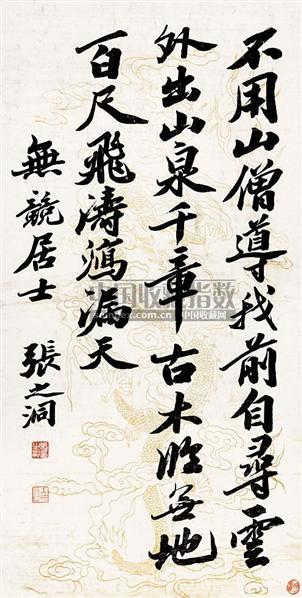 不用山僧導我前自尋雲
外出山泉千章古木臨無地
百尺飛濤瀉漏天
無競居士 張之洞
中国收藏指数
中国收藏网